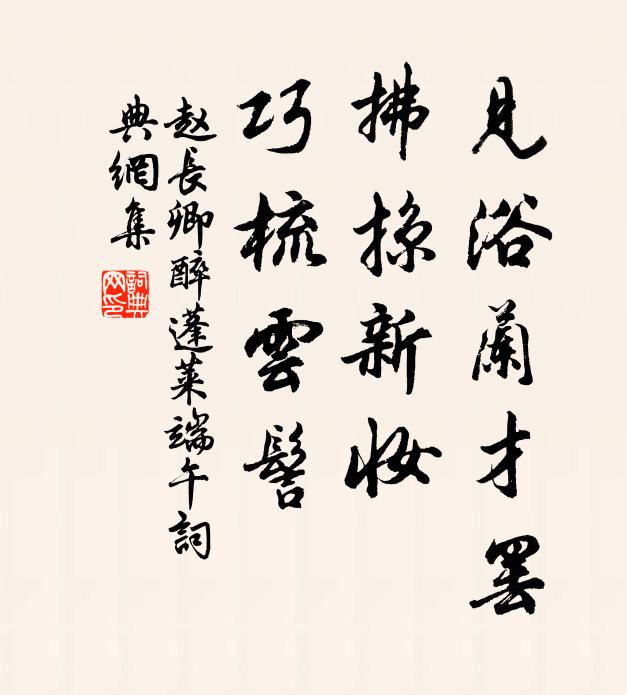 見浴蘭才罷
拂掠新妝
巧梳雲髻
赵長卿醉蓬萊端午詞
典網集
詞典
网印